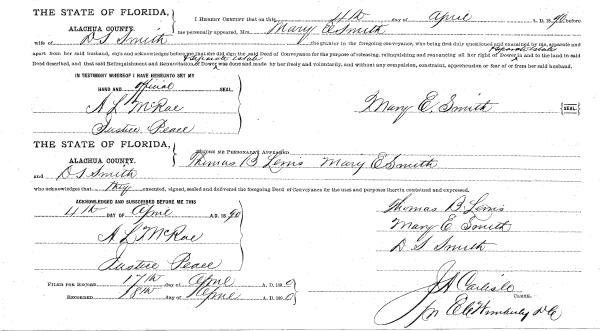 THE STATE OF FLORIDA,
ALACHUA COUNTY.
I HEREBY CERTIFY that on this 4th day of April A. D. 1890 before
me personally appeared, Mrs. Mary E Smith
wife of D S Smith the grantor in the foregoing conveyance, who being first duly questioned and examined by me, separate and
apart from her said husband, says and acknowledges before me that she did sign the said Deed of Conveyance for the purpose of releasing, relinquishing and renouncing all her right of Dower separate estate in and to the land in said
Deed described, and that said Relinquishment and Renunciation of Dower separate estate was done and made by her freely and voluntarily, and without any compulsion, constraint, apprehension or fear of or from her said husband.
IN TESTIMONY WHEREOF I HAVE HEREUNTO SET MY
HAND AND official SEAL.
A L McRae
Justice Peace
Mary E. Smith SEAL
THE STATE OF FLORIDA,
ALACHUA COUNTY.
BEFORE ME PERSONALLY APPEARED
Thomas B Lewis Mary E Smith
and D S Smith
who acknowledges that they executed, signed, sealed and delivered the foregoing Deed of Conveyance for the uses and purposes therein contained and expressed.
ACKNOWLEDGED AND SUBSCRIBED BEFORE ME THIS
4th DAY OF April A.D. 1890
A L McRae
Justice Peace
Thomas B. Lewis
Mary E Smith
D S Smith
FILED FOR RECORD 17th day of April A. D. 1890
RECORDED 18th day of April A. D. 1890
J A Carlisle
CLERK.
pr E E Wimberly D C